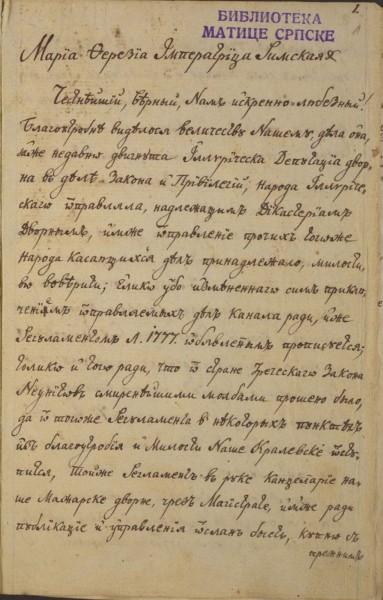 1.
БИБЛИОТЕКА
МАТИЦЕ СРПСКЕ
Маріа Ѳерезіа Імператріца Римская
Честнѣйшій, вѣрный, Намъ искренно любезный!
Благоутробнѣ видѣлося величествꙋ Нашемꙋ, дѣла она,
яже недавно двигнꙋта Іллѵріческа Депꙋтаціа двор-
на во дѣлѣ Закона и Прівілегій, народа Іллѵріче-
скаго ѿправляла, надлежащимъ Дікастеріамъ
Дворнымъ, имже ѿправленіе прочихъ тогожде
народа касающихся дѣлъ принадлежало, милости-
во ввѣрити; Елико ꙋбо измѣненнаго симъ прикл-
ченіемъ ѿправляемыхъ дѣлъ канала ради, иже
Регꙋламентомъ Л. 1777. ѿбявленнымъ прописꙋется;
толико и того ради, что ѿ стране Греческаго Закона
Неунітовъ смиреннѣйшими молбами прошено было,
да ѿ тогожде Регꙋламента в нѣкоторыхъ пꙋнктахъ
изъ благоꙋтробія и Милости Наше Кралевске ѿстꙋ-
пится, тойже Регламентъ в рꙋке канцеларіе на-
ше Маџарске дворне, чрезъ Магістрате, имже ради
пꙋблікаціе и ꙋправленія ѿсланъ бысть, кꙋпно съ
прежнимъ